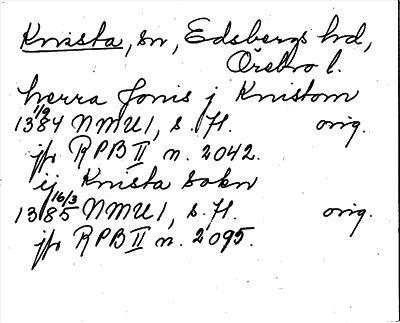 Knista, sn, Edsbergs hd,
Örebro l.
herra Jonis j Knistom
1/9
1384 NMU 1, s. 71. orig.
jfr RPB II n. 2042.
ij Knista sokn
16/3
1385 NMU 1, s. 71. orig.
jfr RPB II n. 2095.